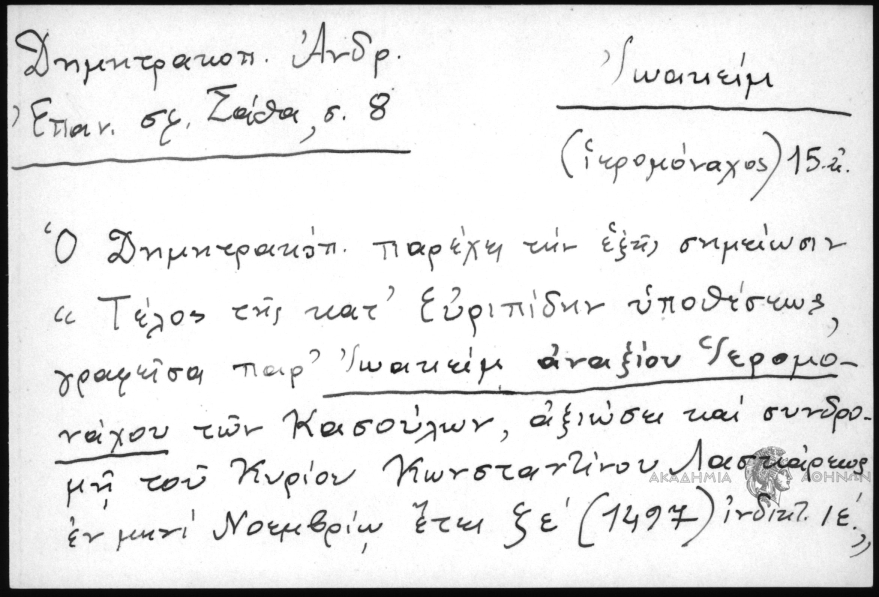 Δημητρακοπ. Ἀνδρ.
Ἐπαν. σφ. Σάθα, σ. 8
Ἰωακείμ
(ἱερομόναχος) 15.αἰ.
Ὁ Δημητρακόπ. παρέχει τήν ἑξῆς σημείωσιν
“ Τέλος τῆς κατ’ Εὐριπίδην ὑποθέσεως,
γραφεῖσα παρ’ Ἰωακείμ ἀναξίου Ἱερομο-
νάχου τῶν Κασούλων, ἀξιώσει καί συνδρο-
μῇ τοῦ Κυρίου Κωνσταντίνου Λασκάρεως
ἐν μηνί Νοεμβρίῳ ἔτει ξε΄ (1497) ἰνδικτ. ιέ.,,
ΑΚΑΔΗΜΙΑ ΑΘΗΝΩΝ